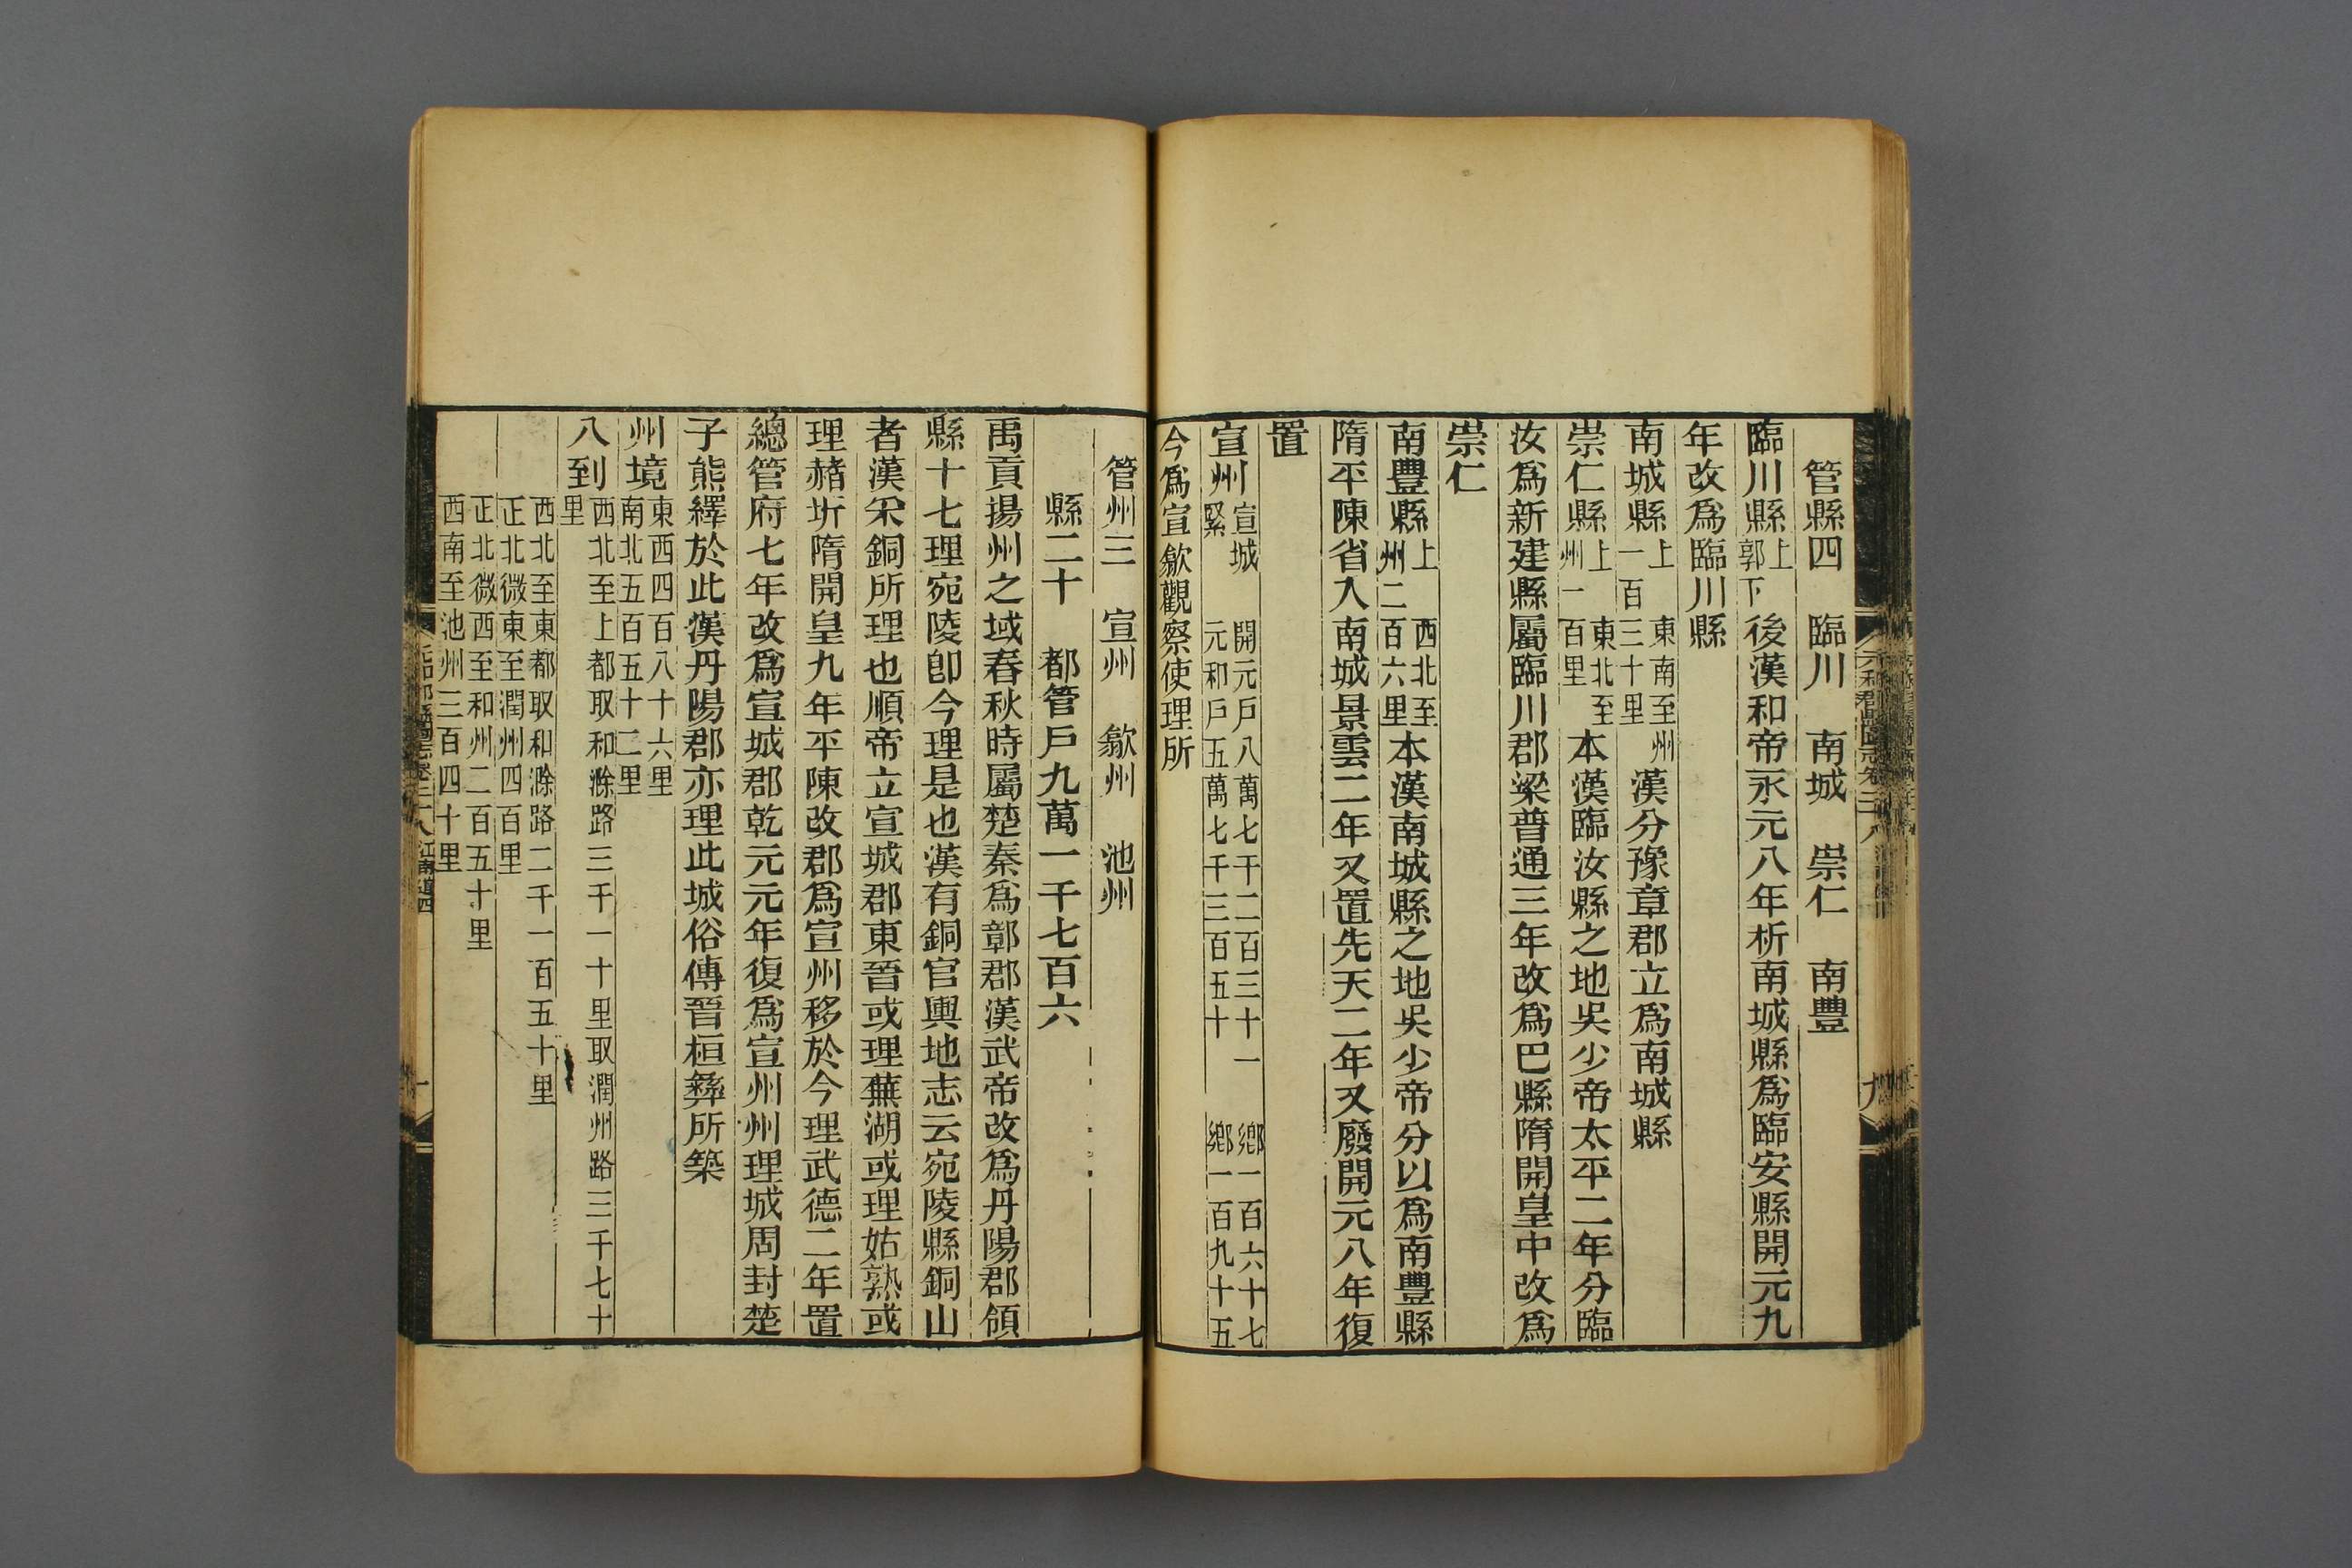 管縣四　臨川　南城　崇仁　南豐
臨川縣上郭下　後漢和帝永元八年析南城縣爲臨安縣開元九
年改爲臨川縣
南城縣上　東南至州一百三十里　漢分豫章郡立爲南城縣
崇仁縣上　東北至州一百里　本漢臨汝縣之地吳少帝太平二年分臨
汝爲新建縣屬臨川郡梁普通三年改爲巴縣隋開皇中改爲
崇仁
南豐縣上　西北至州二百六里　本漢南城縣之地吳少帝分以爲南豐縣
隋平陳省入南城景雲二年又置先天二年又廢開元八年復
置
宣州宣城緊　開元戸八萬七千二百三十一　鄉一百六十七　元和戸五萬七千三百五十　鄉一百九十五
今爲宣歙觀察使理所
管州三　宣州　歙州　池州
縣二十　都管戸九萬一千七百六
禹貢揚州之域春秋時屬楚秦爲鄣郡漢武帝改爲丹陽郡領
縣十七理宛陵卽今理是也漢有銅官輿地志云宛陵縣銅山
者漢采銅所理也順帝立宣城郡東晉或理蕪湖或理姑熟或
理赭圻隋開皇九年平陳改郡爲宣州移於今理武德二年置
總管府七年改爲宣城郡乾元元年復爲宣州州理城周封楚
子熊繹於此漢丹陽郡亦理此城俗傳晉桓彝所築
州境東西四百八十六里南北五百五十二里
八到西北至上都取和滁路三千一十里取潤州路三千七十里
西北至東都取和滁路二千一百五十里
正北微東至潤州四百里
正北微西至和州二百五十里
西南至池州三百四十里